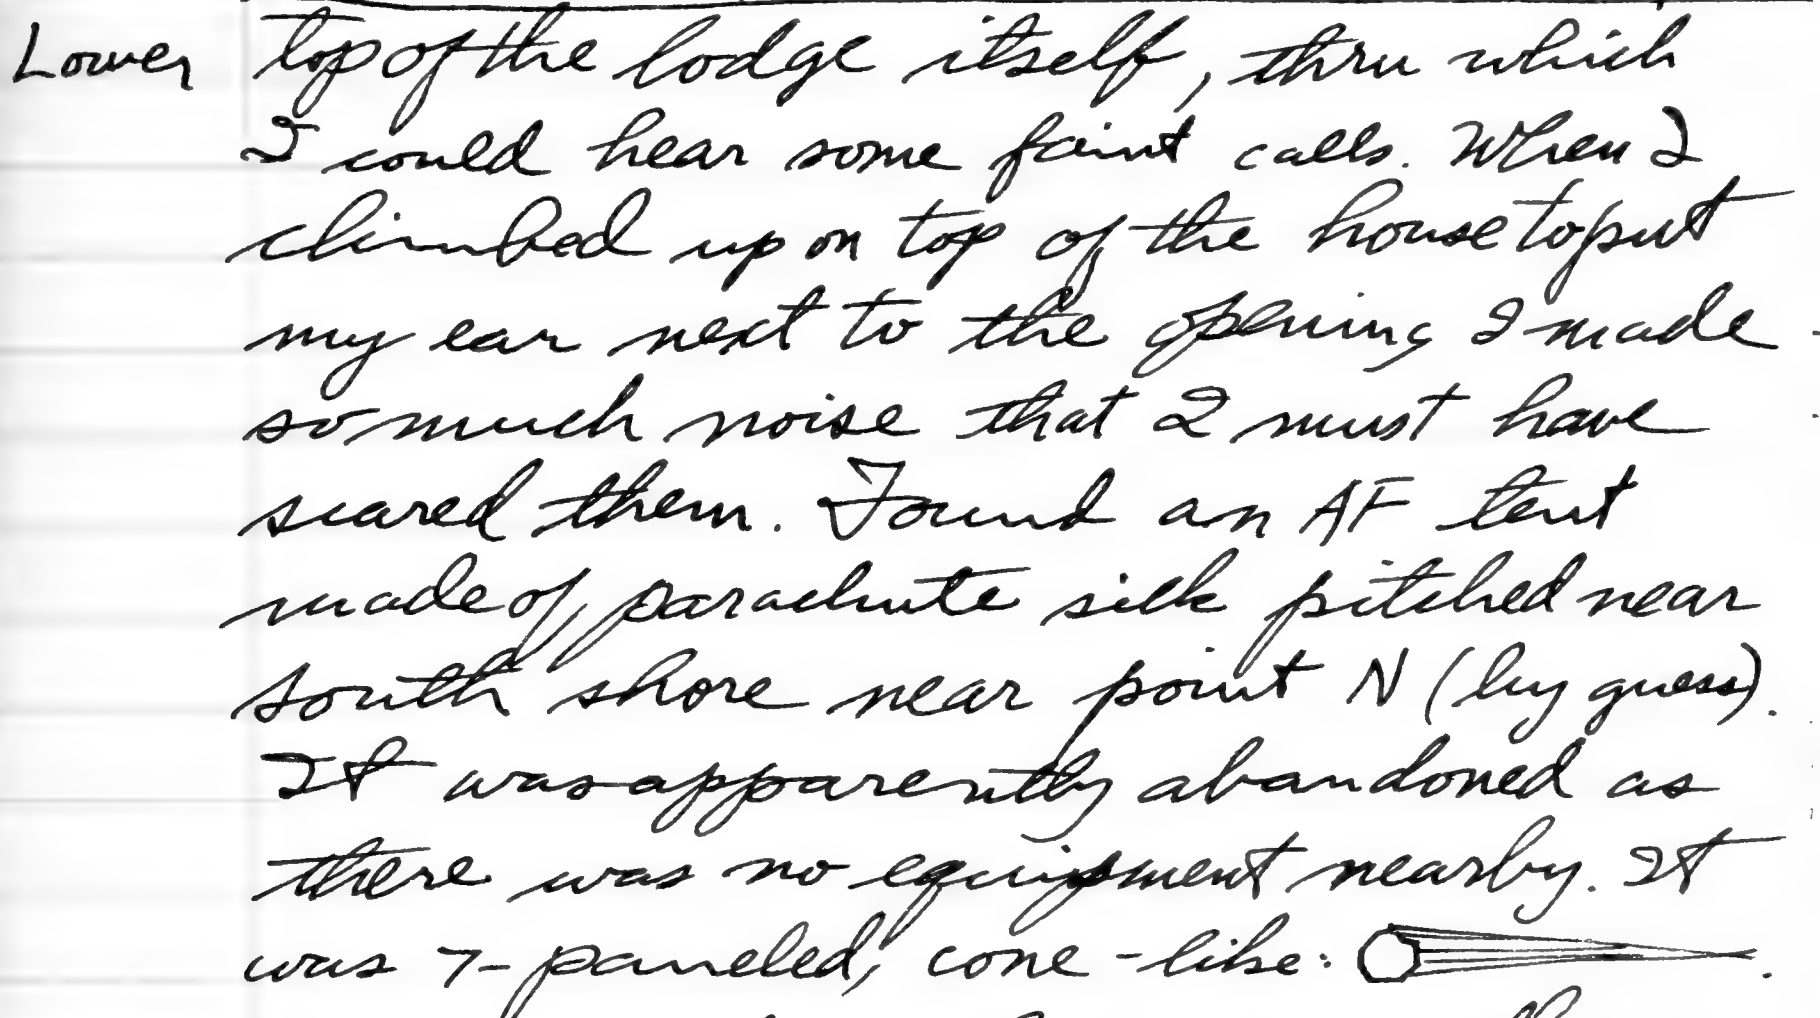 Lower top of the lodge itself, thru which
I could hear some faint calls. When I
climbed up on top of the house to put
my ear next to the opening I made
so much noise that I must have
scared them. Found an AF tent
made of parachute silk pitched near
south shore near point N (by guess).
It was apparently abandoned as
there was no equipment nearby. It
was 7-paneled, cone-like: .